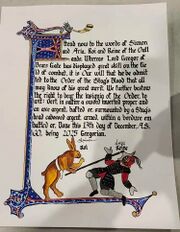 Attend now to the words of Siamon
and Aria, Roi and Reine of the East
lands. Whereas Lord Gregor of
Bears Gate has displayed great skill on the fie
ld of combat, it is Our will that he be admit
ted to the Order of the Stag's Blood that all
may know of his great merit. We further bestow
the right to bear the insignia of the Order, to
wit: Vert, in saltire a sword inverted proper and
an axe argent, hafted or, surmounted by a Stag's
head cabossed argent, armed, within a bordure em
battled or. Done this 13th day of December, A.S.
60, being 2025 Gregorian.
Roi
Reine